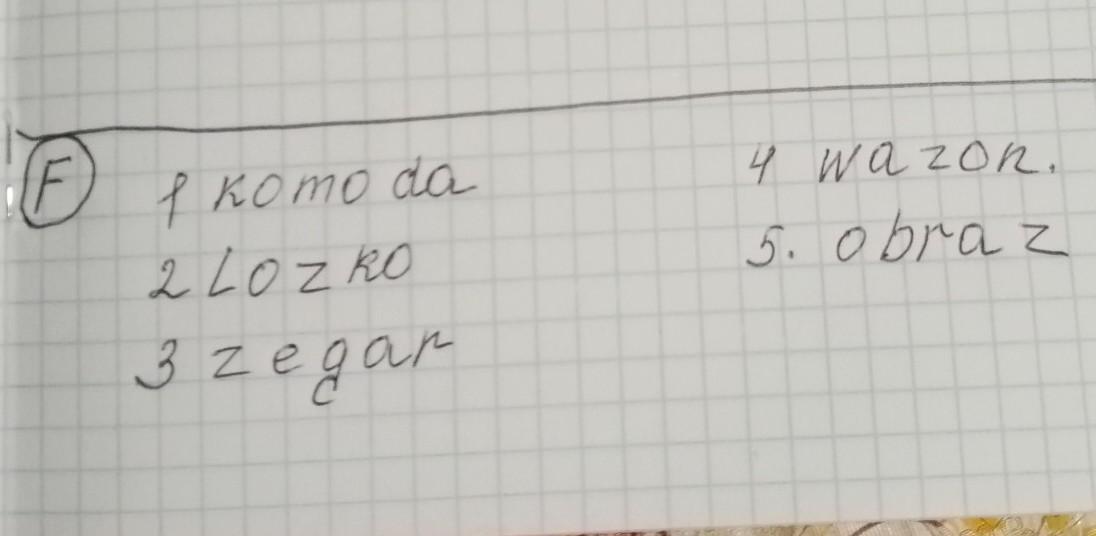 F 1 komoda
2 Lozko
3 zegar
4 wazon.
5. obraz